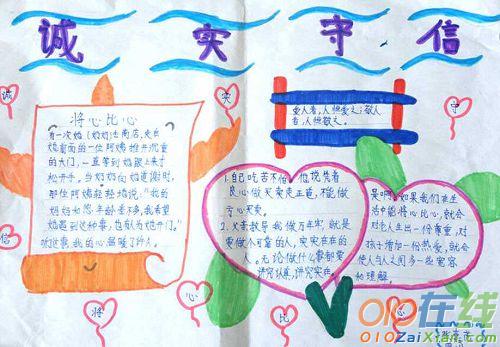 诚 实 守 信
诚
实
守
信
将心比心
有一次奶奶去商店,走在
她前面的一位阿姨推开沉重
的大门,一直等到她跟上来才
松开手。当奶奶向她道谢时,
那位阿姨轻轻地说:"我的
妈妈和您年龄差不多,我希望
她遇到这种事,也有人为她开门。"
听了这事,我的心温暖了许久。
爱人者,人恒爱之;敬人
者,人恒敬之。
1.自己吃苦不怕
良心做天卖走正道,不能做
亏心天卖。
2.父老教导我做万年牢,就是
要做个可靠的人,实实在在的
人。无论做什么事都要
讲究认真,讲究实在。
是啊,如果我们在生
活中能将心比心,就会
对老人生出一份尊重,对
孩子增加一份热爱,就会
使人与人之间多一些宽容
和理解。
将
心
比
心
010在线
010ZaiXian.com